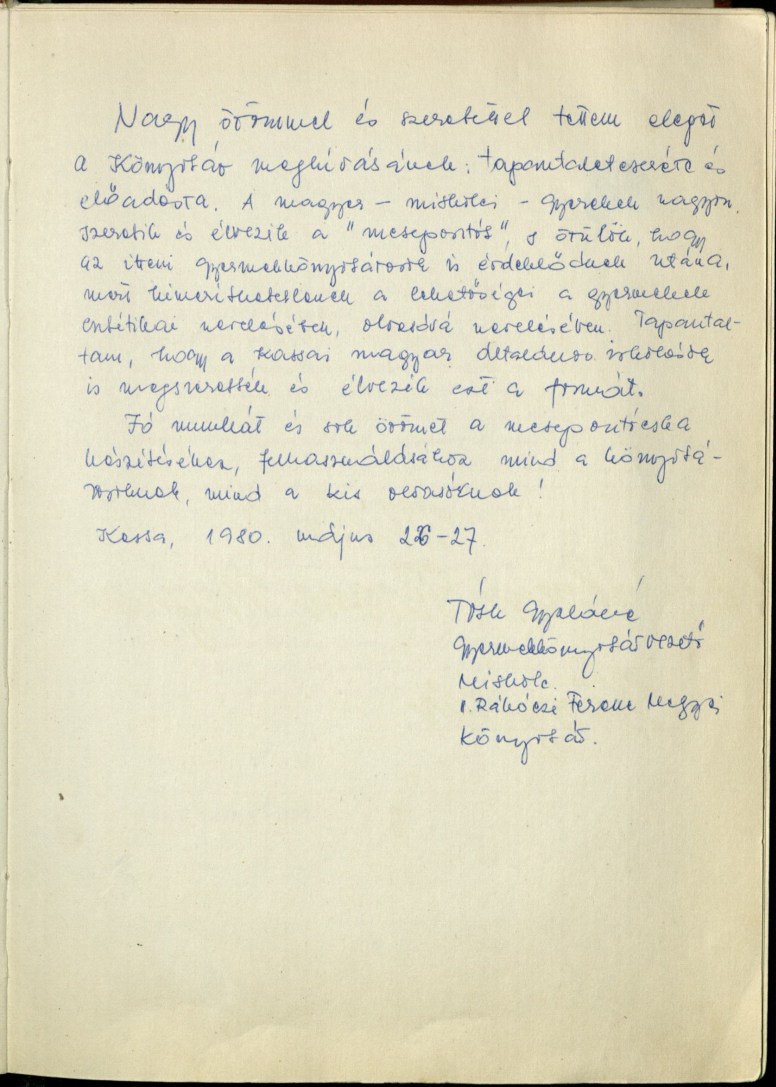 Nagy örömmel és szeretettel tettem eleget
a Könyvtár meghívásának: tapasztalatcserére és
előadásra. A magyar - miskolci - gyerekek nagyon
szeretik és élvezik a "mesepontós", s örülök, hogy
az itteni gyermekkönyvtárosok is érdeklődnek utána,
mert kimeríthetetlenek a lehetőségei a gyermekek
esztétikai nevelésében, olvasóvá nevelésében. Tapasztal-
tam, hogy a kassai magyar általános iskolások
is megszerették és élvezik ezt a formát.
Jó munkát és sok örömet a
készítéséhez, felhasználásához mind a könyvtá-
rosoknak, mind a kis olvasóknak!
Kassa, 1980. május 26-27.
Tóth Gyuláné
Gyermekkönyvtárvezető
Miskolc.
II. Rákóczi Ferenc Megyei
Könyvtár.